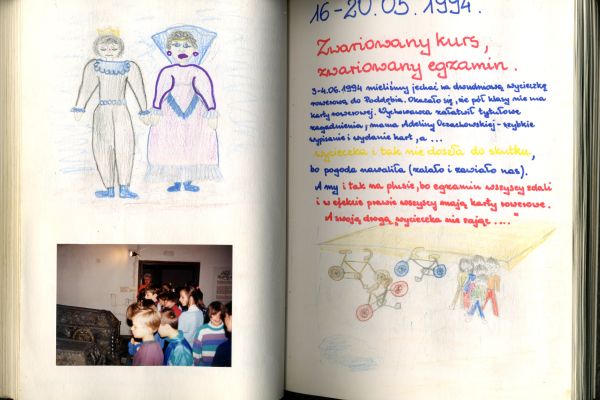 16-20.05.1994.
Zwariowany kurs,
zwariowany egzamin.
3-4.06.1994 mieliśmy jechać na dwudniową wycieczkę
rowerową do Poddębia. Okazało się, że pół klasy nie ma
karty rowerowej. Wychowawca załatwił tytułowe
zagadnienia, mama Adeliny - szybkie
wypisanie i wydanie kart, a ...
wycieczka i tak nie doszła do skutku,
bo pogoda nawaliła (zalało i zawiało nas).
A my i tak na plusie, bo egzamin wszyscy zdali
i w efekcie prawie wszyscy mają karty rowerowe.
A swoją drogą „wycieczka nie zając ...."